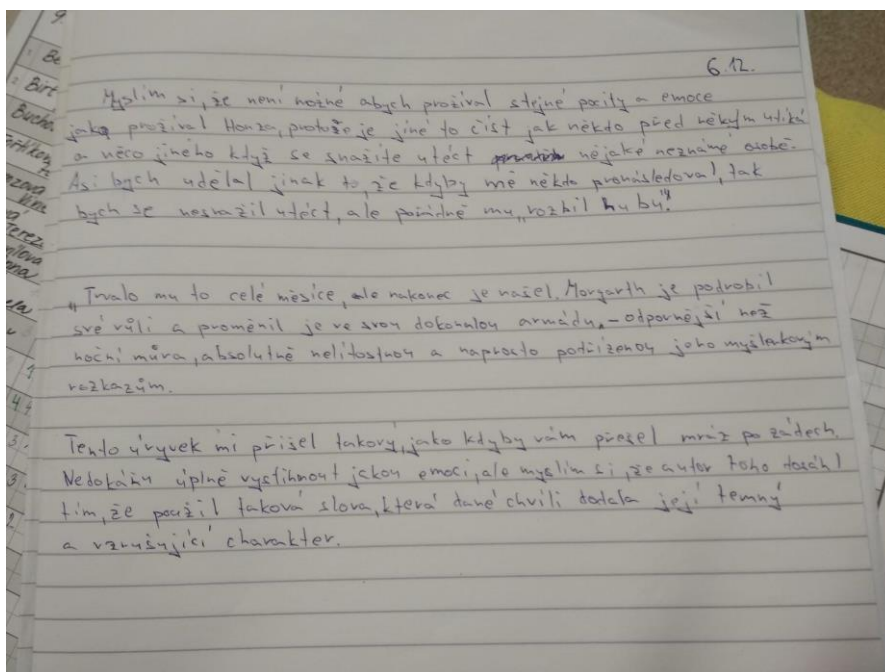 9.
Be
Birt
Bucho
6.12.
Myslím si, že není možné abych prožíval stejné pocity a emoce
jako prožíval Honza, protože je jiné to číst jak někdo před někým utíká
a něco jiného když se snažíte utéct nějaké neznámé osobě.
Asi bych udělal jinak to, že kdyby mě někdo pronásledoval, tak
bych se nesnažil utéct, ale pořádně mu „rozbil hubu".
„Trvalo mu to celé měsíce, ale nakonec je našel. Morgarth je podrobil
své vůli a proměnil je ve svou dokonalou armádu – odpornější než
noční můra, absolutně nelítostnou a naprosto podřízenou jeho myšlenkovým
rozkazům.
Tento úryvek mi přišel takový, jako kdyby vám přešel mráz po zádech.
Nedokážu úplně vystihnout jakou emoci, ale myslím si, že autor toho dosáhl
tím, že použil taková slova, která dané chvíli dodala její temný
a vzrušující charakter.